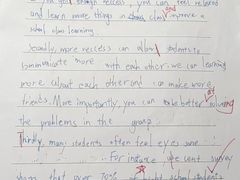 If you have enough recess, you can feel relaxed
and learn more things in class and improve a
whol class learning.
Secondly, more recess can allow students to
communicate more with each other. we can learning
more about each other and can make more
friends. More importantly, you can be better solving
the problems in the group.
Thirdly, many students often feel eyes
For instance, we sent survey
shows that over 70% of school students